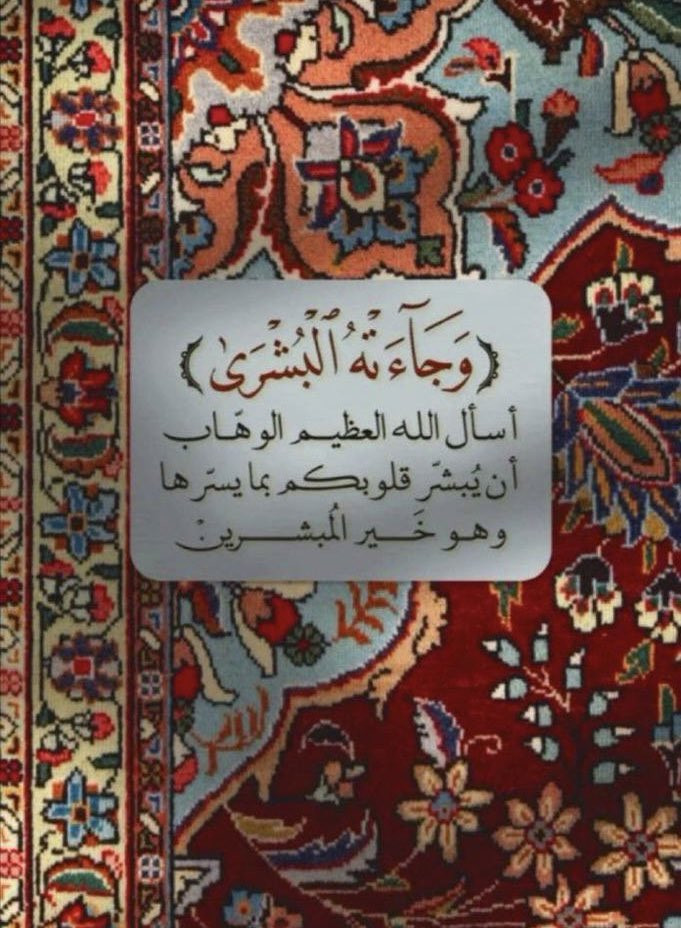 ﴿وَجَآءَتْهُ ٱلْبُشْرَىٰ﴾
أسأل الله العظيم الوهّاب
أن يُبشّر قلوبكم بما يسرّها
وهو خَير المُبشرين